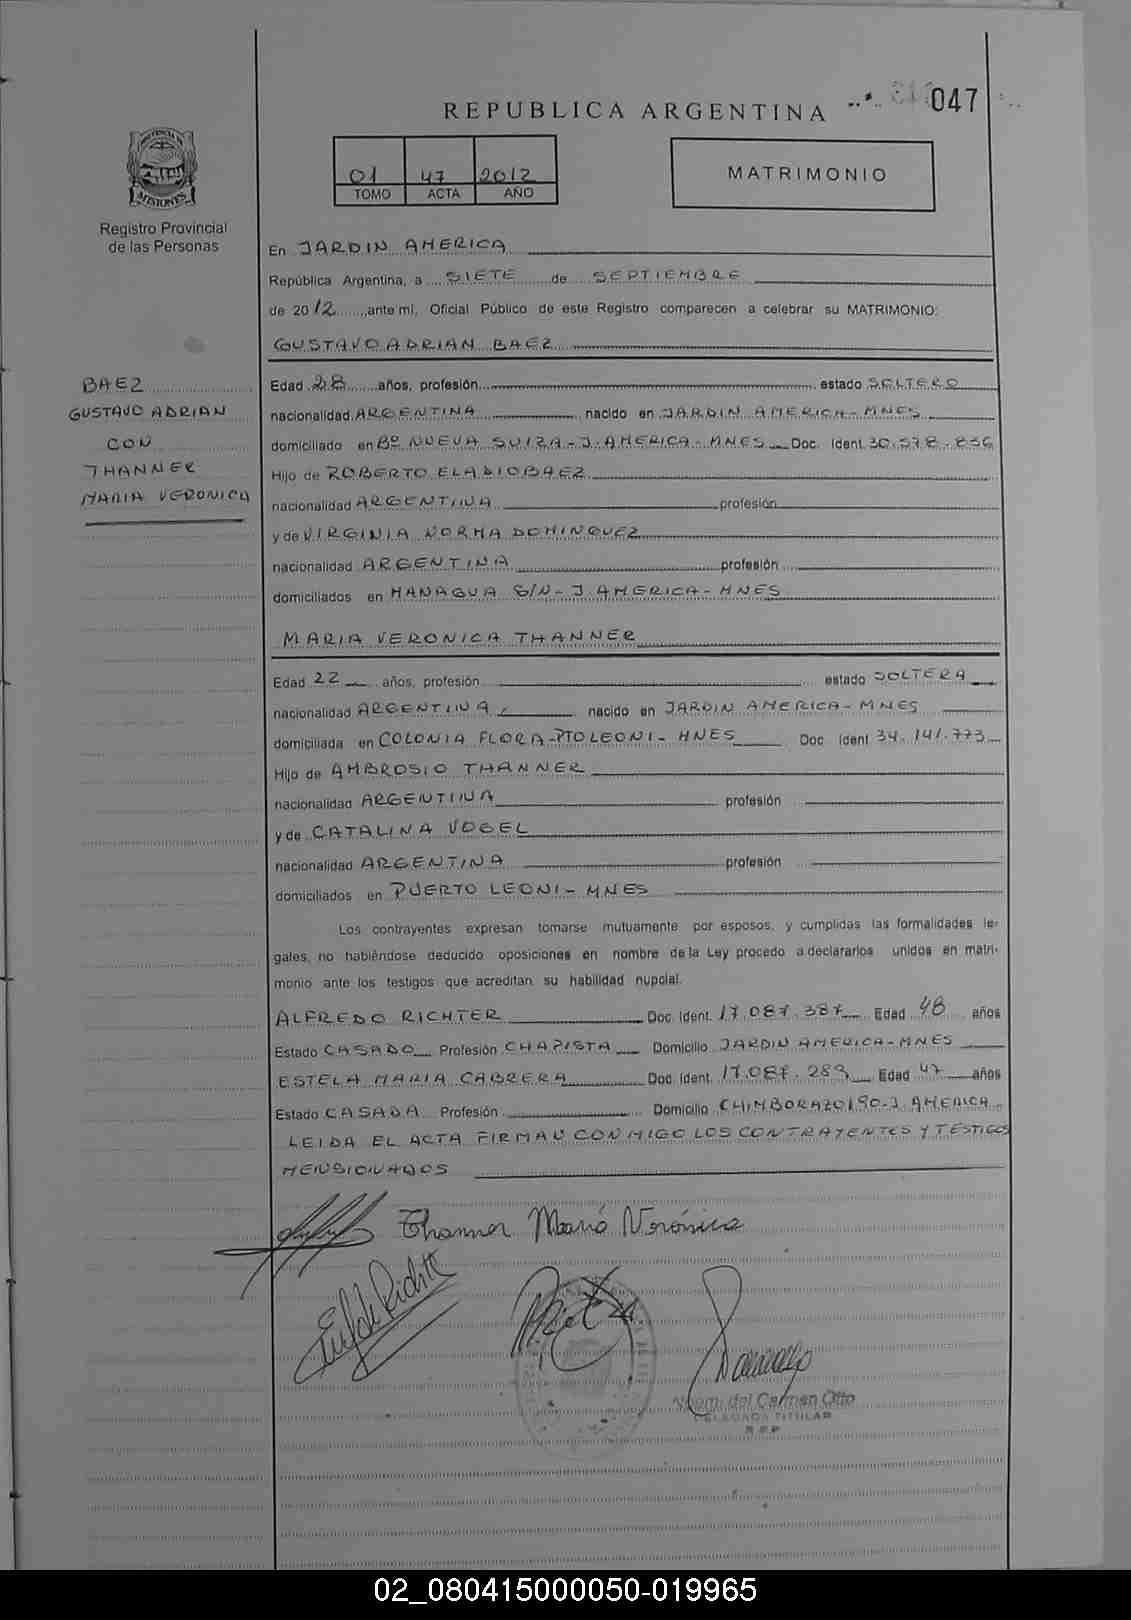 REPUBLICA ARGENTINA
047
01 47 2012
TOMO ACTA AÑO
MATRIMONIO
PROVINCIA DE
MISIONES
Registro Provincial
de las Personas
En JARDIN AMERICA
República Argentina, a SIETE de SEPTIEMBRE
de 2012 ante mi, Oficial Público de este Registro comparecen a celebrar su MATRIMONIO:
GUSTAVO ADRIAN BAEZ
BAEZ
GUSTAVO ADRIAN
CON
THANNER
MARIA VERONICA
Edad 28 años, profesión estado SOLTERO
nacionalidad ARGENTINA nacido en JARDIN AMERICA-MNES
domiciliado en Bº NUEVA SUIZA-J.AMERICA-MNES Doc. Ident. 30.578.836
Hijo de ROBERTO ELADIO BAEZ
nacionalidad ARGENTINA profesión
y de VIRGINIA NORMA DOMINGUEZ
nacionalidad ARGENTINA profesión
domiciliados en MANAGUA S/N-J AMERICA-MNES
MARIA VERONICA THANNER
Edad 22 años, profesión estado SOLTERA
nacionalidad ARGENTINA nacido en JARDIN AMERICA-MNES
domiciliada en COLONIA FLORA-PTO LEONI-MNES Doc. Ident 34.141.773
Hijo de AMBROSIO THANNER
nacionalidad ARGENTINA profesión
y de CATALINA VOGEL
nacionalidad ARGENTINA profesión
domiciliados en PUERTO LEONI-MNES
Los contrayentes expresan tomarse mutuamente por esposos, y cumplidas las formalidades le-
gales, no habiéndose deducido oposiciones en nombre de la Ley procedo a declararlos unidos en matri-
monio ante los testigos que acreditan su habilidad nupcial.
ALFREDO RICHTER Doc. Ident. 17.087.387 Edad 48 años
Estado CASADO Profesión CHAPISTA Domicilio JARDIN AMERICA-MNES
ESTELA MARIA CABRERA Doc. Ident. 17.087.289 Edad 47 años
Estado CASADA Profesión Domicilio CHIMBORAZO 190-J AMERICA
LEIDA EL ACTA FIRMAN CONMIGO LOS CONTRAYENTES Y TESTIGOS
MENSIONADOS
Thanner María Verónica
Noemi del Carmen Otto
DELEGADA TITULAR
R.P.P
02_080415000050-019965